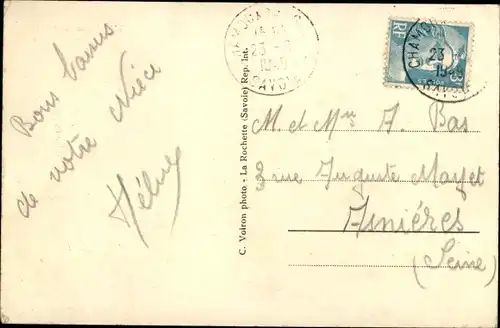 Bons baisers
de votre Nièce
Hélène
C. Voiron photo - La Rochette (Savoie) Rep. Int.
23
SAVOIE
RF
CHAMOU
23
M. et Mme A. Bas
2 rue Auguste Mayet
Asnières
(Seine)